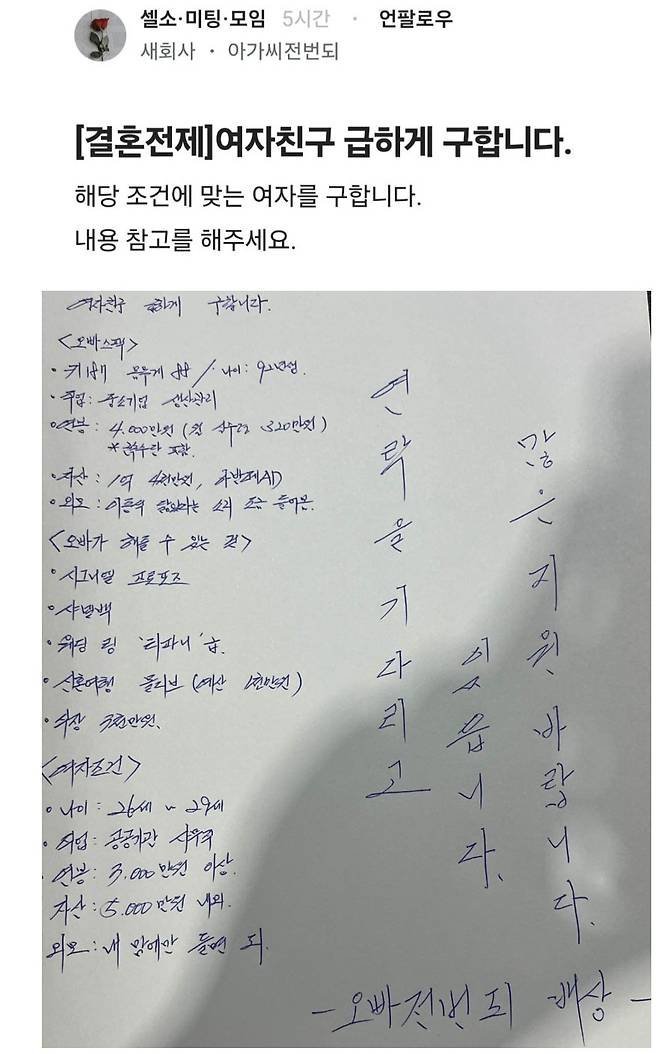 셀소·미팅·모임 5시간 · 언팔로우
새회사 · 아가씨전번되
[결혼전제]여자친구 급하게 구합니다.
해당 조건에 맞는 여자를 구합니다.
내용 참고를 해주세요.
여자친구 급하게 구합니다.
<오빠스펙>
· 몸무게 / 나이: 92년생.
· 직업: 중소기업 생산관리
· 연봉: 4.000만원 (월 실수령 320만원)
포함.
· 자산: 1억 4천만원, 아반떼AD
· 외모: 닮았다는 소리 조금 들어본.
<오빠가 해줄 수 있는 것>
· 시그니엘 프로포즈
· 샤넬백
· 웨딩 링 '티파니' 급.
· 신혼여행 몰디브 (예산 1천만원)
<여자조건>
· 나이: 26세 ~ 29세
· 직업: 공공기관 사무직
· 연봉: 3.000만원 이상.
자산: 5.000만원 내외.
외모: 내 맘에만 들면 되.
연락을 기다리고
있읍니다.
많은 지원바랍니다.
- 오빠전번되 배상 -